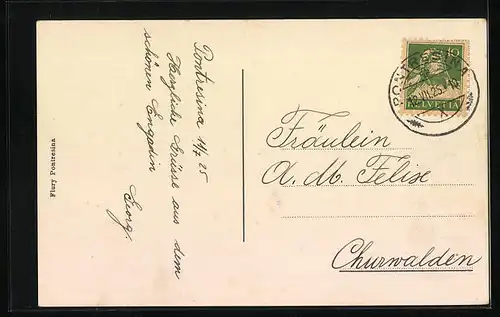 Pontresina 11/7 25
Herzliche Grüsse aus dem
schönen Engadin
Georg.
Flury Pontresina
10
HELVETIA
PONTRESINA
VII.25
Fräulein
A. M. Felise
Churwalden